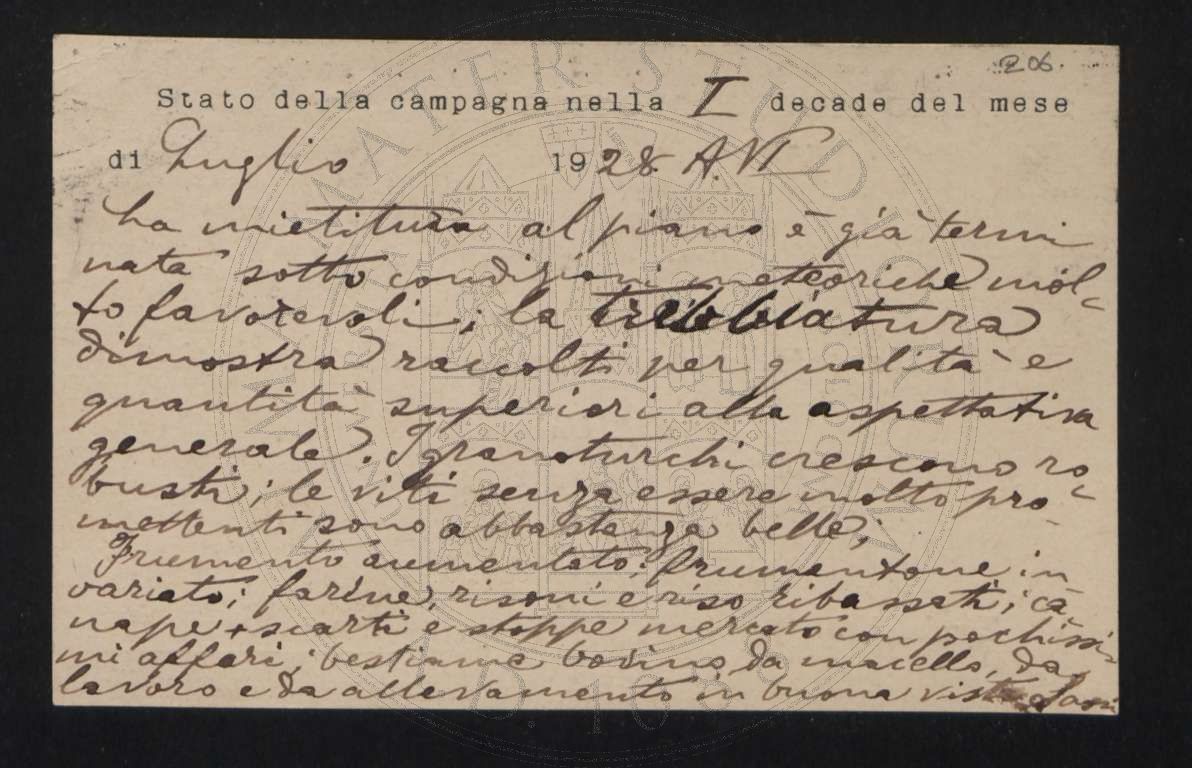 206.
Stato della campagna nella I decade del mese
di Luglio 1928. A. VI
La mietitura al piano è già termi
nata sotto condizioni meteoriche mol-
to favorevoli; la trebbiatura
dimostra raccolti per qualità e
quantità superiori alla aspettativa
generale. I granoturchi crescono ro-
busti; le viti senza essere molto pro-
mettenti sono abbastanza belle;
Frumento aumentato; frumentone in
variato; farine, risoni e riso ribassati; ca
nape, scarti e stoppe mercato con pochissi-
mi affari; bestiame bovino da macello, da
lavoro e da allevamento in buona vista